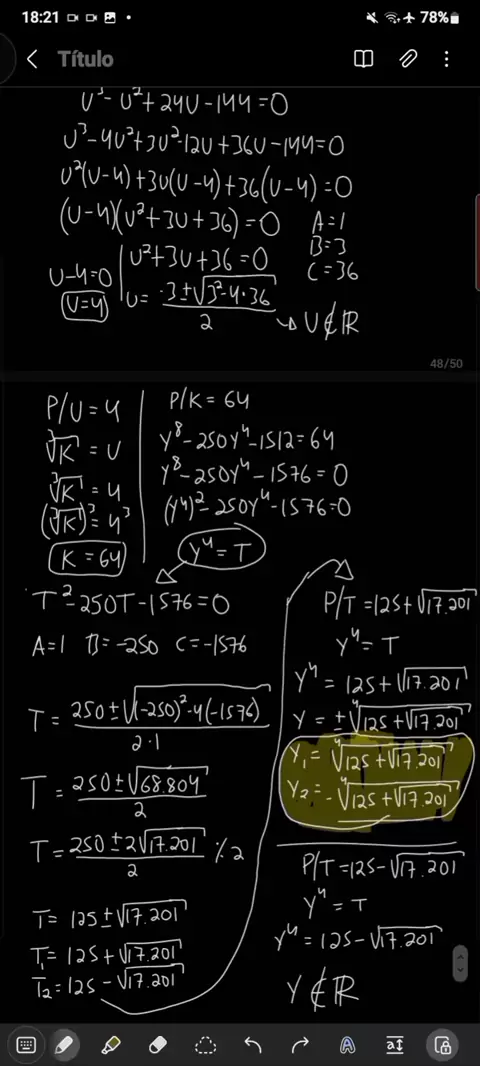 18:21
78%
Título
U³-U²+24U-144=0
U³-4U²+3U²-12U+36U-144=0
U²(U-4)+3U(U-4)+36(U-4)=0
(U-4)(U²+3U+36)=0
A=1
B=3
C=36
U-4=0
U=4
U²+3U+36=0
U=-3±√3²-4·36
2
U∉ℝ
48/50
P/U=4
∛K=U
∛K=4
(∛K)³=4³
K=64
P/K=64
Y⁸-250Y⁴-1512=64
Y⁸-250Y⁴-1576=0
(Y⁴)²-250Y⁴-1576=0
Y⁴=T
T²-250T-1576=0
A=1 B=-250 C=-1576
T=250±√(-250)²-4(-1576)
2·1
T=250±√68.804
2
T=250±2√17.201 %2
2
T=125±√17.201
T₁=125+√17.201
T₂=125-√17.201
P/T=125+√17.201
Y⁴=T
Y⁴=125+√17.201
Y=±∜125+√17.201
Y₁=∜125+√17.201
Y₂=-∜125+√17.201
P/T=125-√17.201
Y⁴=T
Y⁴=125-√17.201
Y∉ℝ